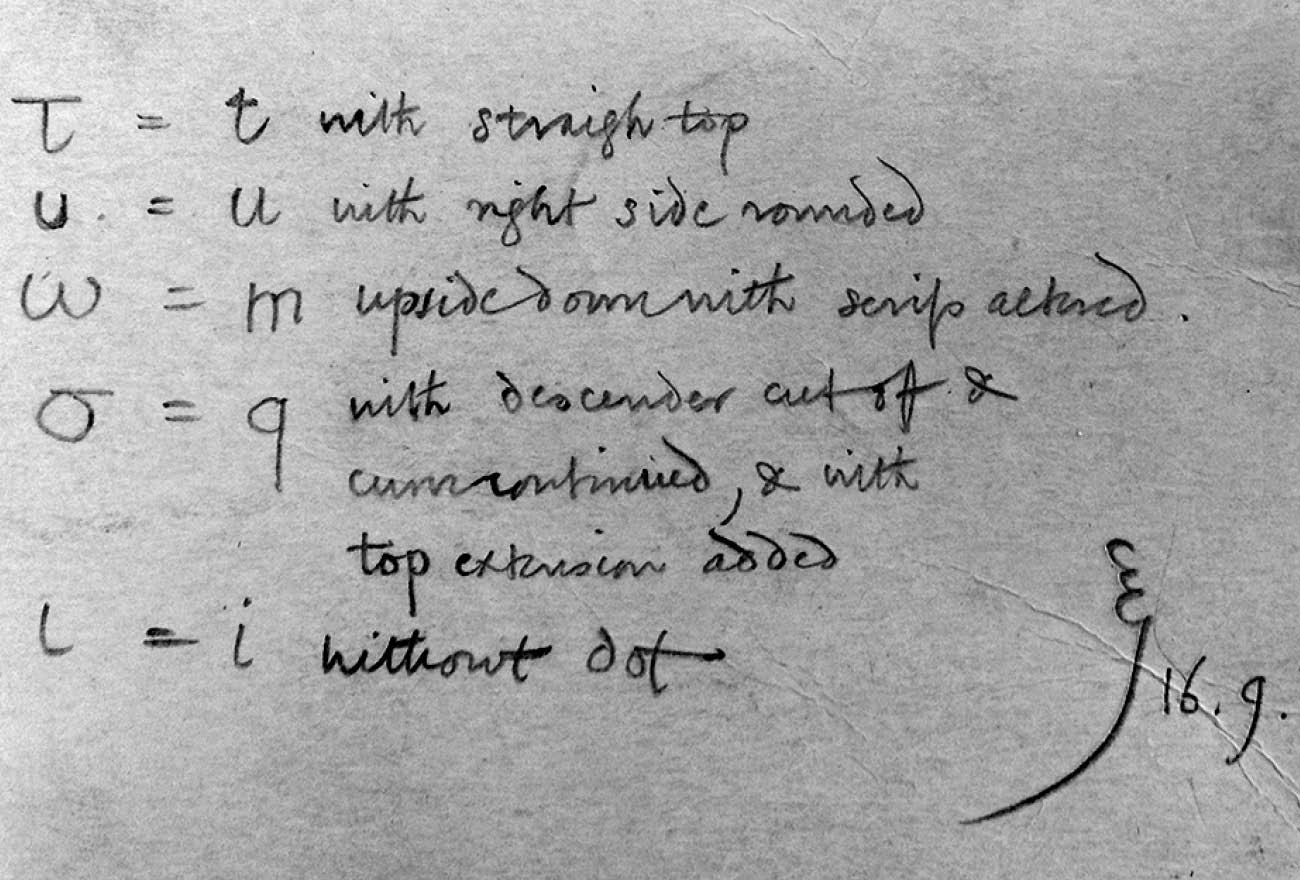 τ = t with straigh top
υ = u with right side rounded
ω = m upside down with serifs altered.
σ = q with descender cut off &
curve continued, & with
top extension added
ι = i without dot
16.9.